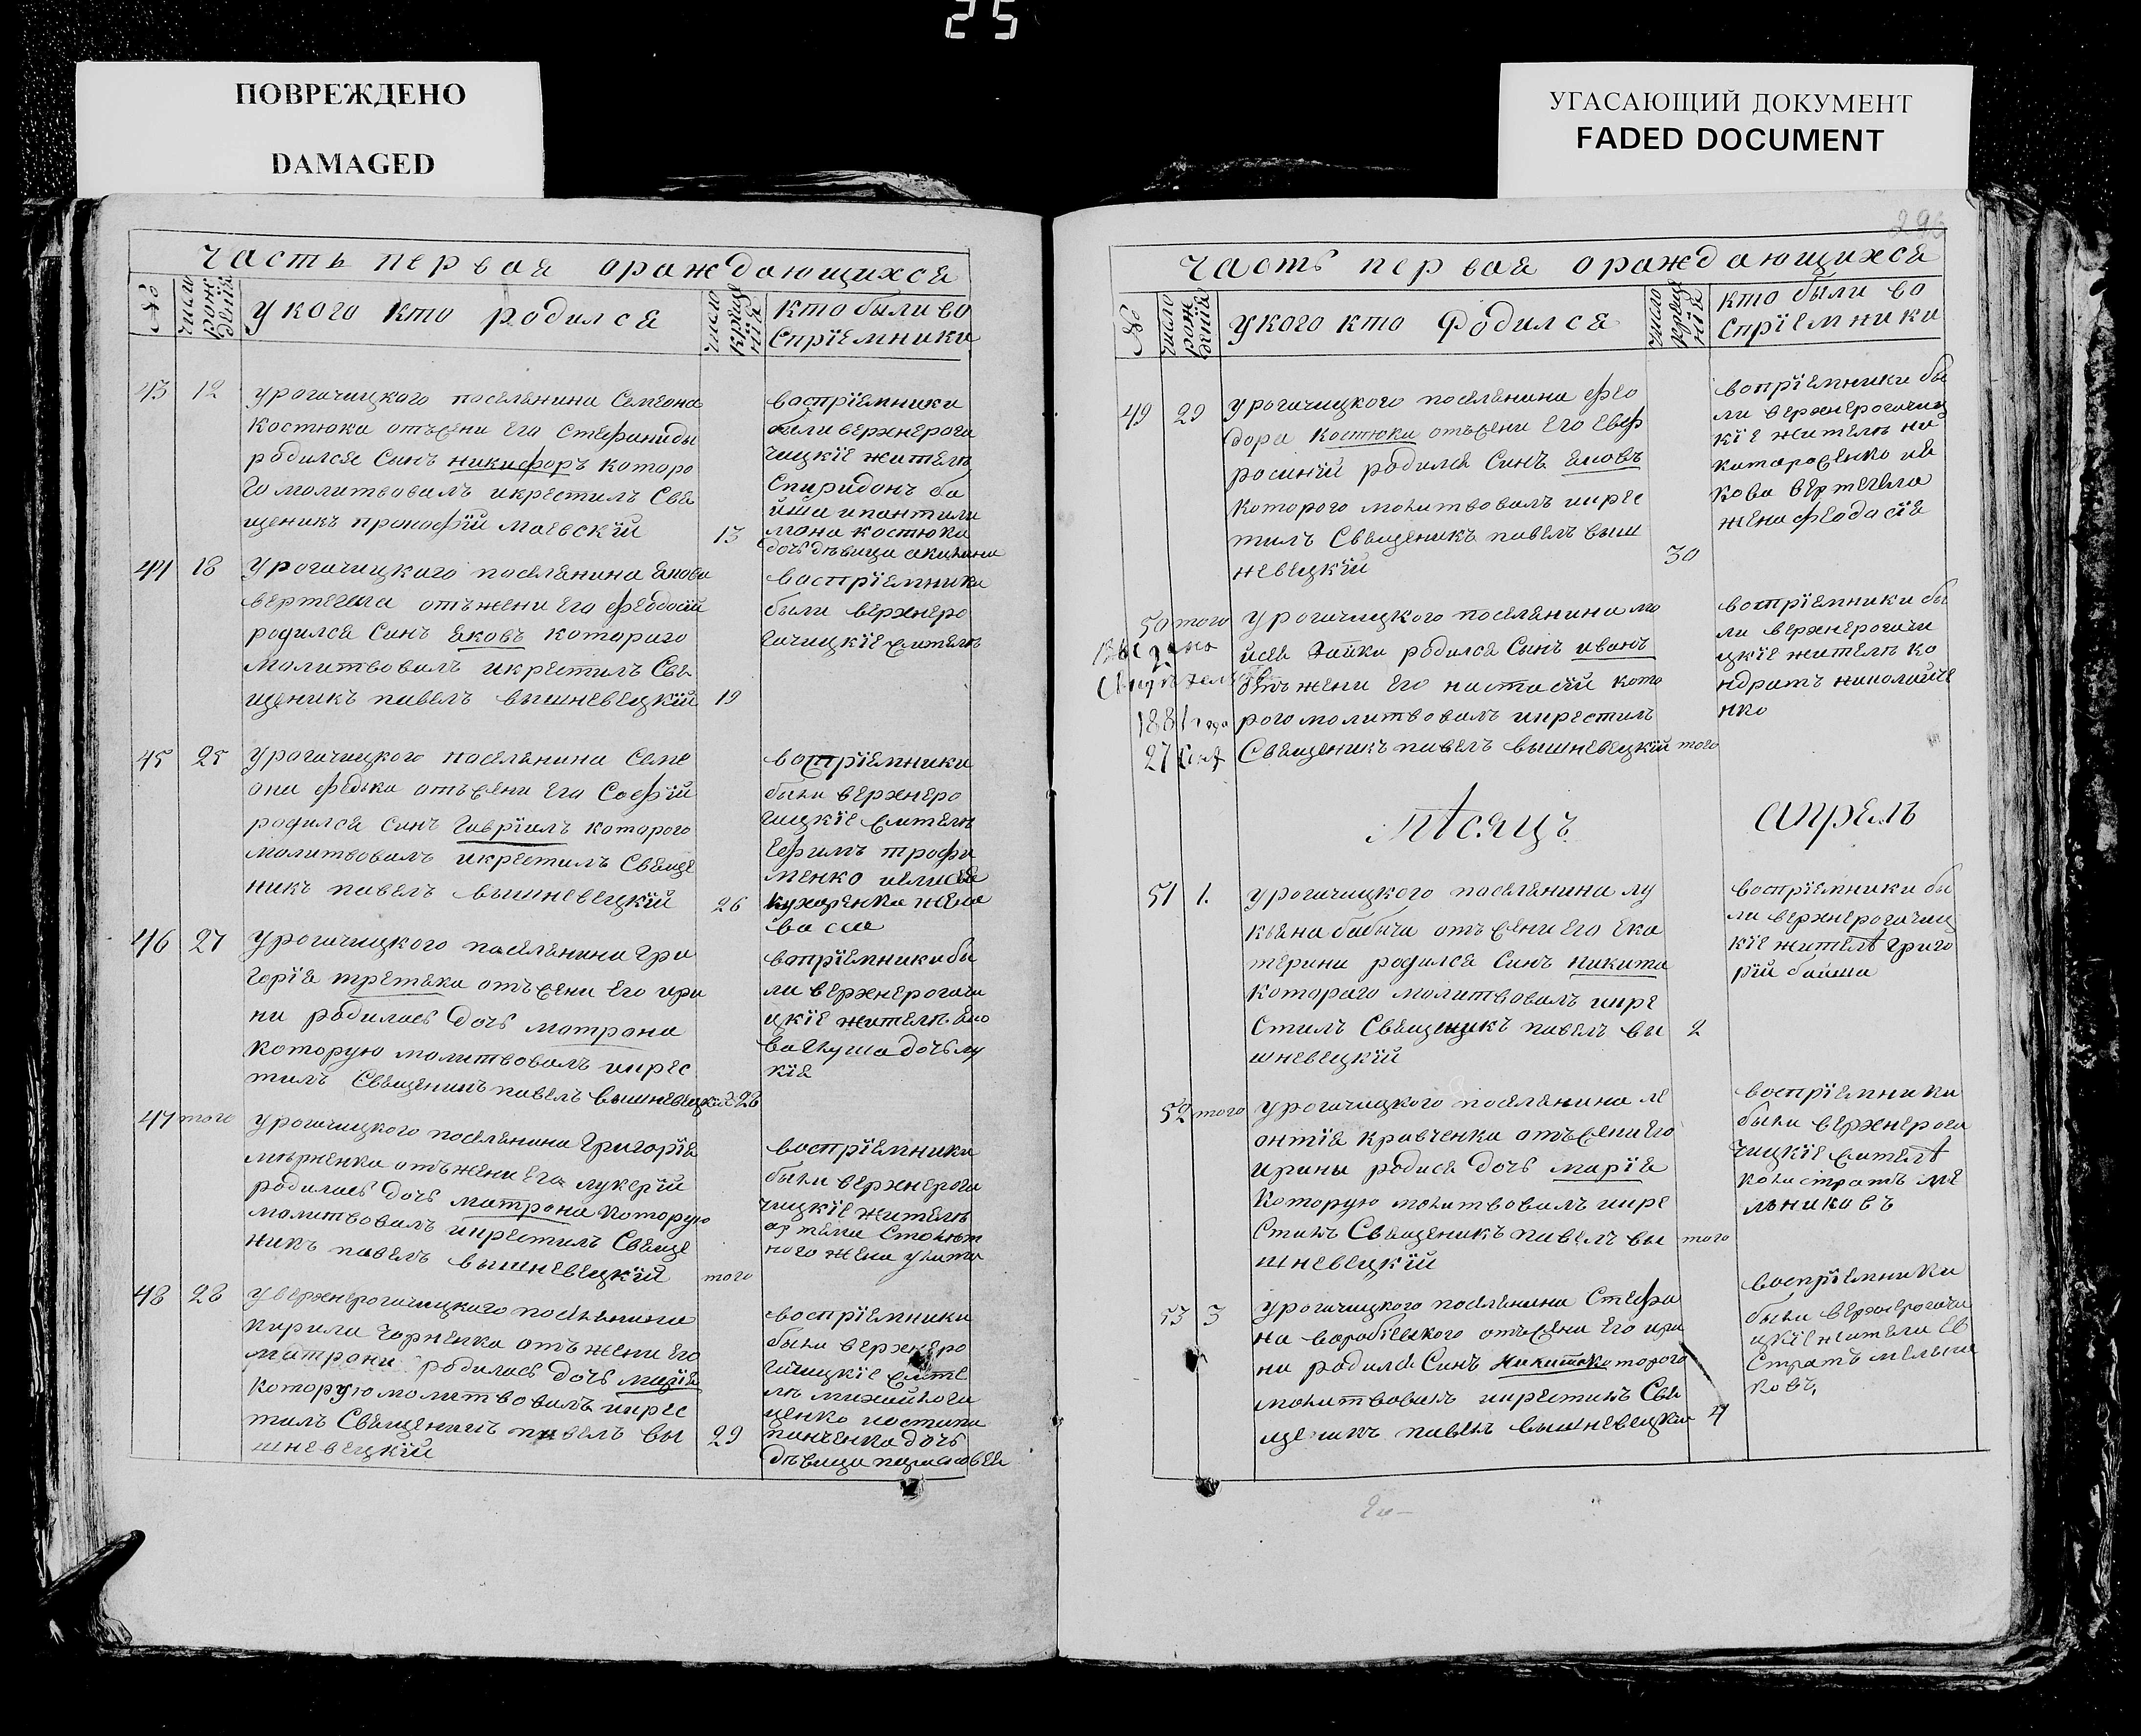 25
ПОВРЕЖДЕНО
DAMAGED
УГАСАЮЩИЙ ДОКУМЕНТ
FADED DOCUMENT
часть первая ораждающихся
№
число рождѣнїя
у кого кто родился
число крѣщенїя
кто были во
спрїемники
43 12
урогачицкого поселянина Семеона
Костюка отъ жени его Стефаниды
родился Синъ никифоръ которо
го молитвовалъ икрестилъ Свя
щеникъ прокофїй маевскїй
13
воспрїемники
были верхнерога
чицкїе жителѣ
Спиридонъ ба
йша ипантили
мона костюка
дочь дѣвица акилина
44 18
урогачицкого поселянина якова
вертегела отъ жени его феодосїи
родился Синъ яковъ которого
молитвовалъ икрестилъ Свя
щеникъ павелъ вышневецкїй
19
воспрїемники
были верхнеро
гачицкїе жителѣ
45 25
урогачицкого поселянина Семе
они федька отъ жени его Софїй
родился синъ Гаврїилъ которого
молитвовалъ икрестилъ Свяще
никъ павелъ вышневецкїй
26
воспрїемники
были верхнеро
гицкїе жителѣ
ефимъ трофи
менко иелисея
кухаренка жена
васса
46 27
урогачицкого поселянина гри
горїя третяка отъ жени его ири
ни родилась дочь матрона
которую молитвовалъ икрес
тилъ Священикъ павелъ вышневецкїй 28
вопрїемники бы
ли верхнерогачи
цкїе жителѣ яко
ва глуша дочь лу
кїя
47 того
урогачицкого поселянина григорїя
отъ жени его лукерїй
родилась дочь матрона которую
молитвовалъ икрестилъ Свяще
никъ павелъ вышневецкїй
того
воспрїемники
были верхнерога
чицкїе жителѣ
артема Столѣт
ного жена улита
48 28
уверхнерогачицкого поселянина
кирила чорненка отъ жени его
матрони родилась дочь марїя
которую молитвовалъ икрес
тилъ Священикъ павелъ вы
шневецкїй
29
воспрїемники
были верхнеро
гачицкїе жите
лѣ михайло га
ценко истипа
панченка дочь
дѣвица парасковея
296
часть первая ораждающихся
№
число рожденїя
у кого кто родился
число крещенїя
кто были во
спрїемники
49 29
урогачицкого поселянина фео
дора Костюка отъ жени его евф
росинїй родился Синъ яковъ
которого молитвовалъ икрес
тилъ Священикъ павелъ выш
невецкїй
30
вопрїемники бы
ли верхнерогачиц
кїе жителѣ ни
катаросенко ия
кова вертегела
жена феодосїя
50 того
урогачицкого поселянина мо
йсея Зайки родился Сынъ иванъ
отъ жени его настасїй кото
рого молитвовалъ икрестилъ
Священикъ павелъ вышневецкїй того
Выдано
Свидѣтельство
1881 года
27
вотрїемники бы
ли верхнерогачи
цкїе жителѣ ко
ндратъ николайче
нко
мѣсяцъ апрель
51 1.
урогачицкого поселянина лу
кьяна бабыча отъ жени его ека
терини родился Синъ никита
которого молитвовалъ икре
стилъ Священикъ павелъ вы
шневецкїй
2
воспрїемники бы
ли верхнерогачиц
кїе жителѣ григо
рїй байша
52 того
урогачицкого поселянина ле
онтїя кравченка отъ жени его
ирины родися дочь марїя
которую молитвовалъ икре
стилъ Священикъ павелъ вы
шневецкїй
того
воспрїемники
были верхнерога
чицкїе жителѣ
колистратъ ме
льниковъ
53 3
урогачицкого поселянина Стефа
на воробїевкого отъ жени его ири
ни родился Синъ Никита которого
молитвовалъ икрестилъ Свя
щеникъ павелъ вышневецкїй
4
воспрїемники
были верхнерогачи
цкїе жители ев
стратъ мельни
ковъ.